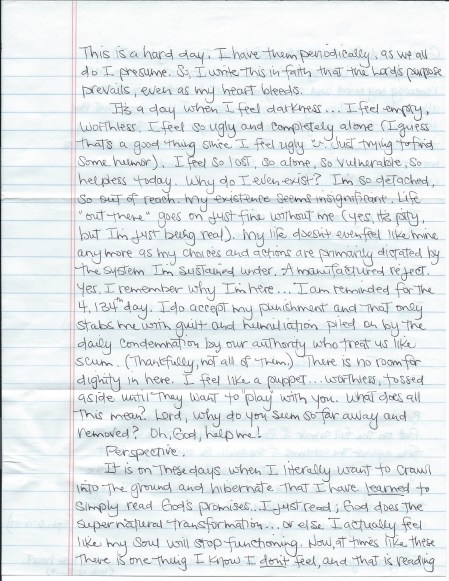 This is a hard day. I have them periodically, as we all
do I presume. So, I write this in faith that the Lord's purpose
prevails, even as my heart bleeds.
It's a day when I feel darkness... I feel empty,
worthless. I feel so ugly and completely alone (I guess
that's a good thing since I feel ugly Just trying to find
some humor). I feel so lost, so alone, so vulnerable, so
helpless today. Why do I even exist? I'm so detached,
so out of reach. My existence seems insignificant. Life
"out there" goes on just fine without me (yes, it's pity,
but I'm just being real). My life doesn't even feel like mine
anymore as my choices and actions are primarily dictated by
the system I'm sustained under. A manufactured reject.
Yes, I remember why I'm here... I am reminded for the
4,134th day. I do accept my punishment and that only
stabs me with guilt and humiliation piled on by the
daily condemnation by our authority who treat us like
scum. (Thankfully, not all of them.) There is no room for
dignity in here. I feel like a puppet... worthless, tossed
aside until they want to "play" with you. What does all
this mean? Lord, why do you seem so far away and
removed? Oh, God, help me!
Perspective.
It is on these days when I literally want to crawl
into the ground and hibernate that I have learned to
simply read God's promises. I just read; God does the
supernatural transformation... or else I actually feel
like my soul will stop functioning. Now, at times like these
there is one thing I know I don't feel, and that is reading